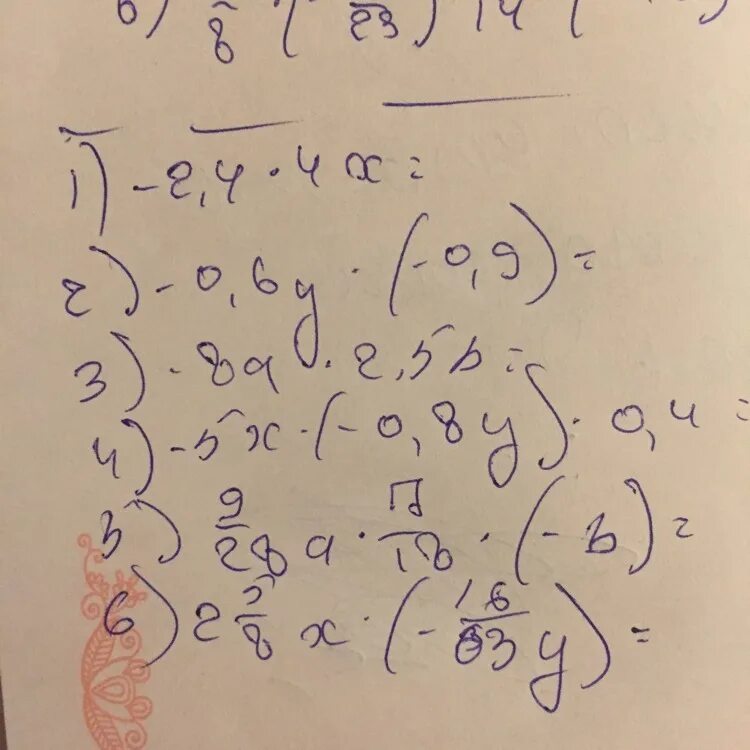 6) 8 (- 23) 14 (
1) -2,4 · 4x =
2) -0,6y · (-0,9) =
3) -8a · 2,5b =
4) -5x · (-0,8y) · 0,4 =
5) 9/28 a · 17/18 · (-b) =
6) 2 5/8 x · (- 16/63 y) =